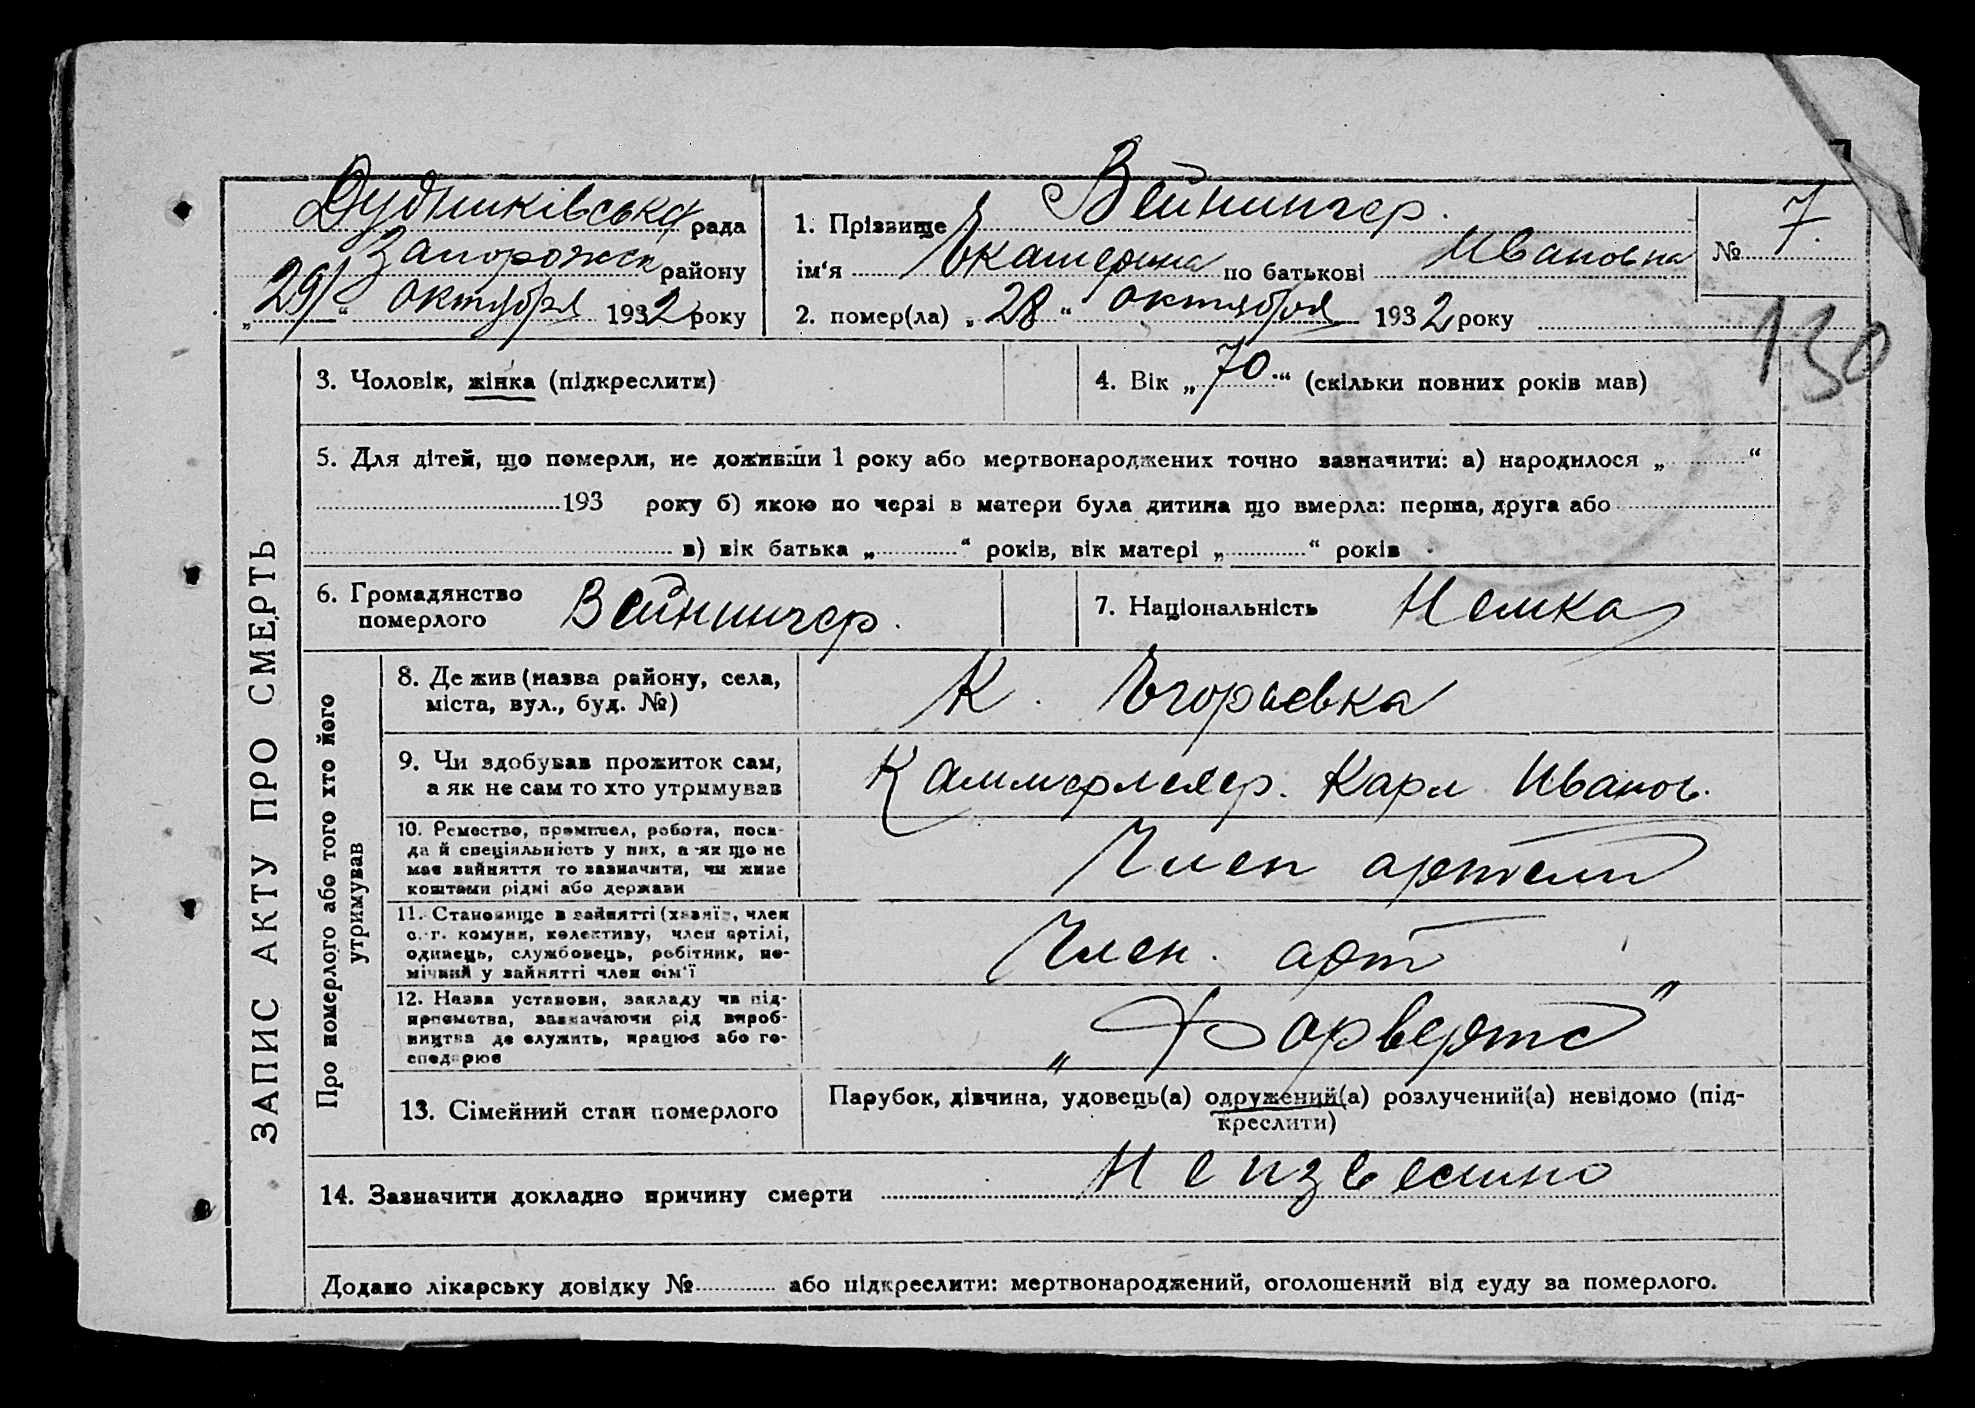 Дудниківська рада
Запорожск району
„29“ октября 1932 року
1. Прізвище Вейнингер.
ім'я Екатерина по батькові Ивановна
2. помер(ла) „28“ октября 1932 року
№ 7.
130
3. Чоловік, жінка (підкреслити)
4. Вік „70“ (скільки повних років мав)
5. Для дітей, що померли, не доживши 1 року або мертвонароджених точно зазначити: а) народилося „ “
193 року б) якою по черзі в матери була дитина що вмерла: перша, друга або
в) вік батька „ “ років, вік матері „ “ років
6. Громадянство
померлого Вейнингер.
7. Національність Немка
ЗАПИС АКТУ ПРО СМЕРТЬ
Про померлого або того хто його
утримував
8. Де жив (назва району, села,
міста, вул., буд. №)
К. Егорьевка
9. Чи здобував прожиток сам,
а як не сам то хто утримував
Каммерлехер. Карл Иванов.
10. Ремество, промисел, робота, поса-
да й спеціяльність у них, а як що не
має зайняття то зазначити, чи живе
коштами рідні або держави
Член артели
11. Становище в зайнятті (хазяїн, член
с.-г. комуни, колективу, член артілі,
одинець, службовець, робітник, по-
мічний у зайнятті член сім'ї
Член. арт
12. Назва установи, закладу чи під-
приємства, зазначаючи рід вироб-
ництва де служить, працює або го-
сподарює
„Форвертс"
13. Сімейний стан померлого
Парубок, дівчина, удовець(а) одружений(а) розлучений(а) невідомо (під-
креслити)
14. Зазначити докладно причину смерти Неизвестно
Додано лікарську довідку № або підкреслити: мертвонароджений, оголошений від суду за померлого.